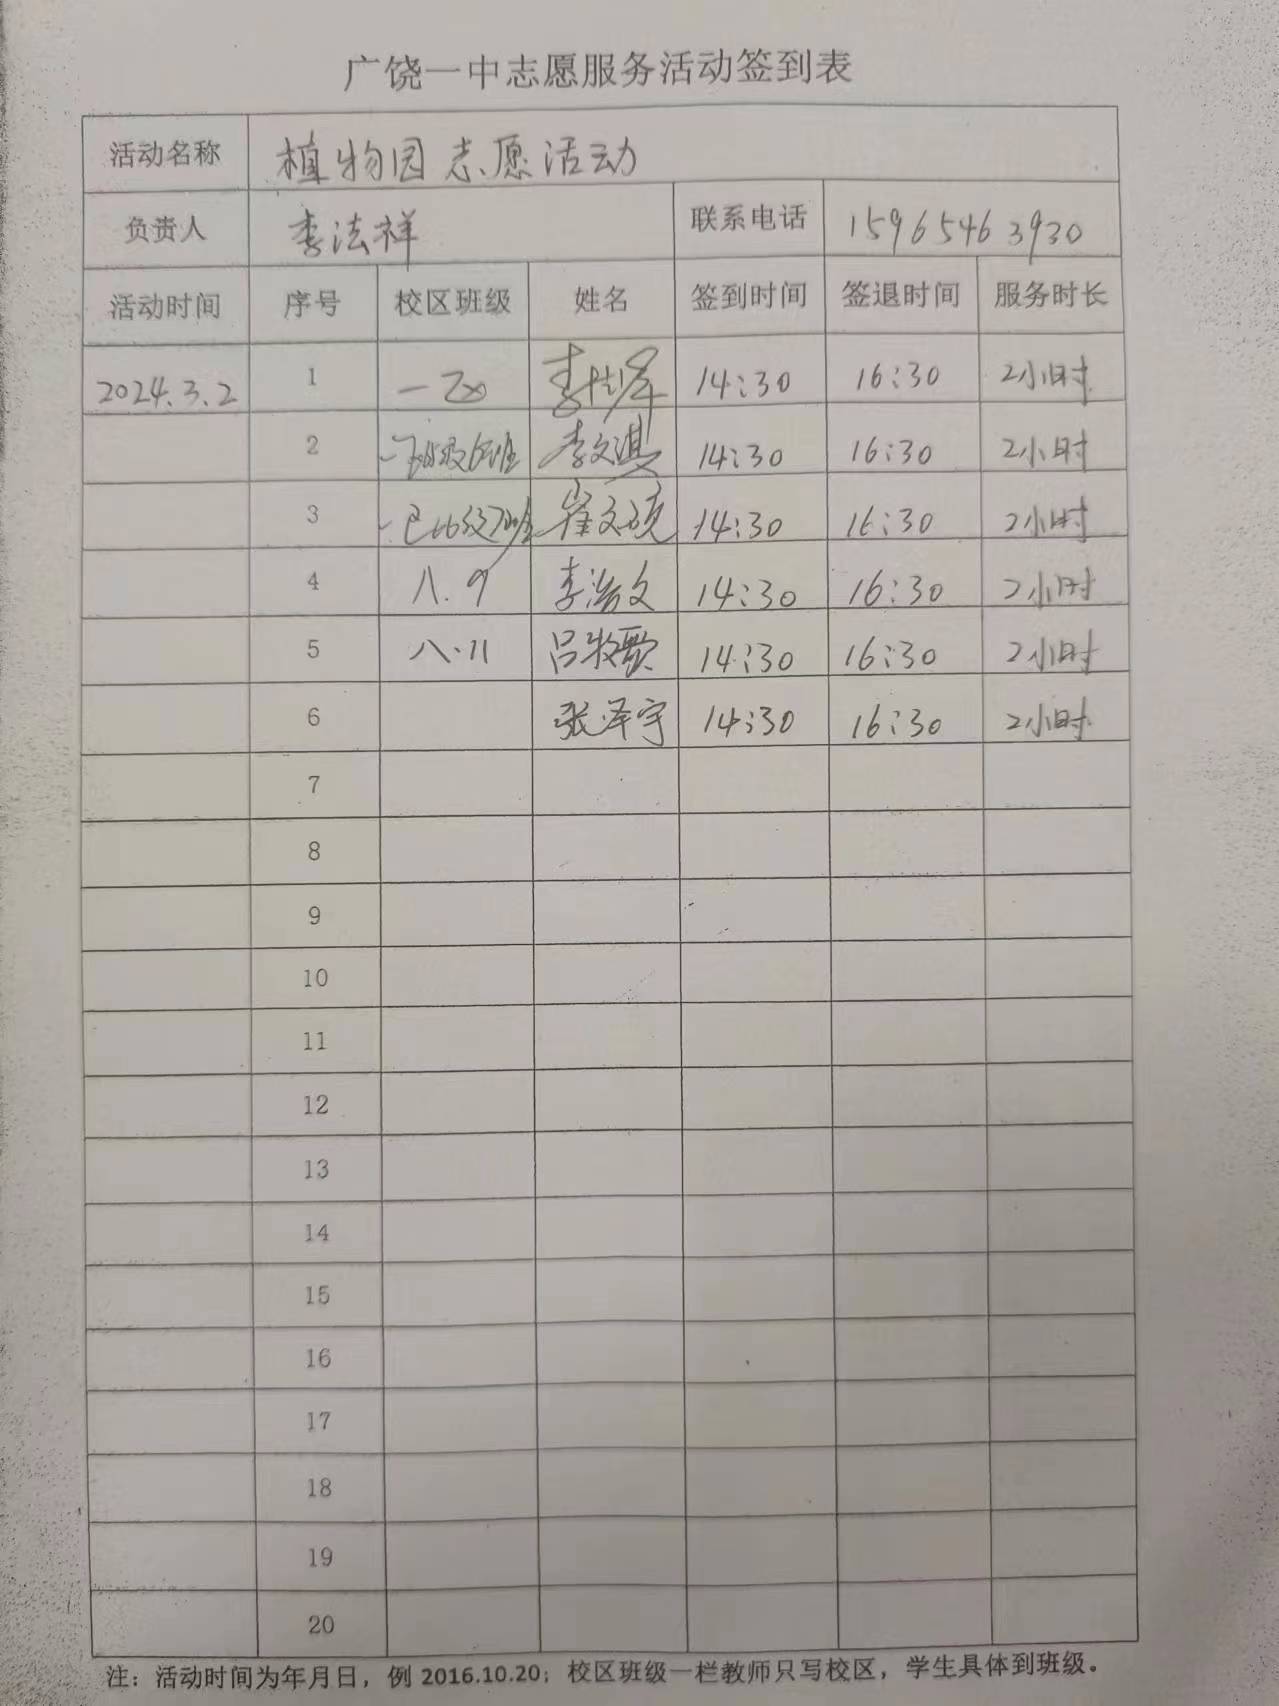 广饶一中志愿服务活动签到表
活动名称 植物园志愿活动
负责人 李法祥 联系电话 15965463930
活动时间 序号 校区班级 姓名 签到时间 签退时间 服务时长
2024.3.2 1 一 14:30 16:30 2小时
2 李文淇 14:30 16:30 2小时
3 崔文硕 14:30 16:30 2小时
4 八.9 李浩文 14:30 16:30 2小时
5 八.11 吕牧歌 14:30 16:30 2小时
6 张泽宇 14:30 16:30 2小时
7
8
9
10
11
12
13
14
15
16
17
18
19
20
注：活动时间为年月日，例 2016.10.20；校区班级一栏教师只写校区，学生具体到班级。